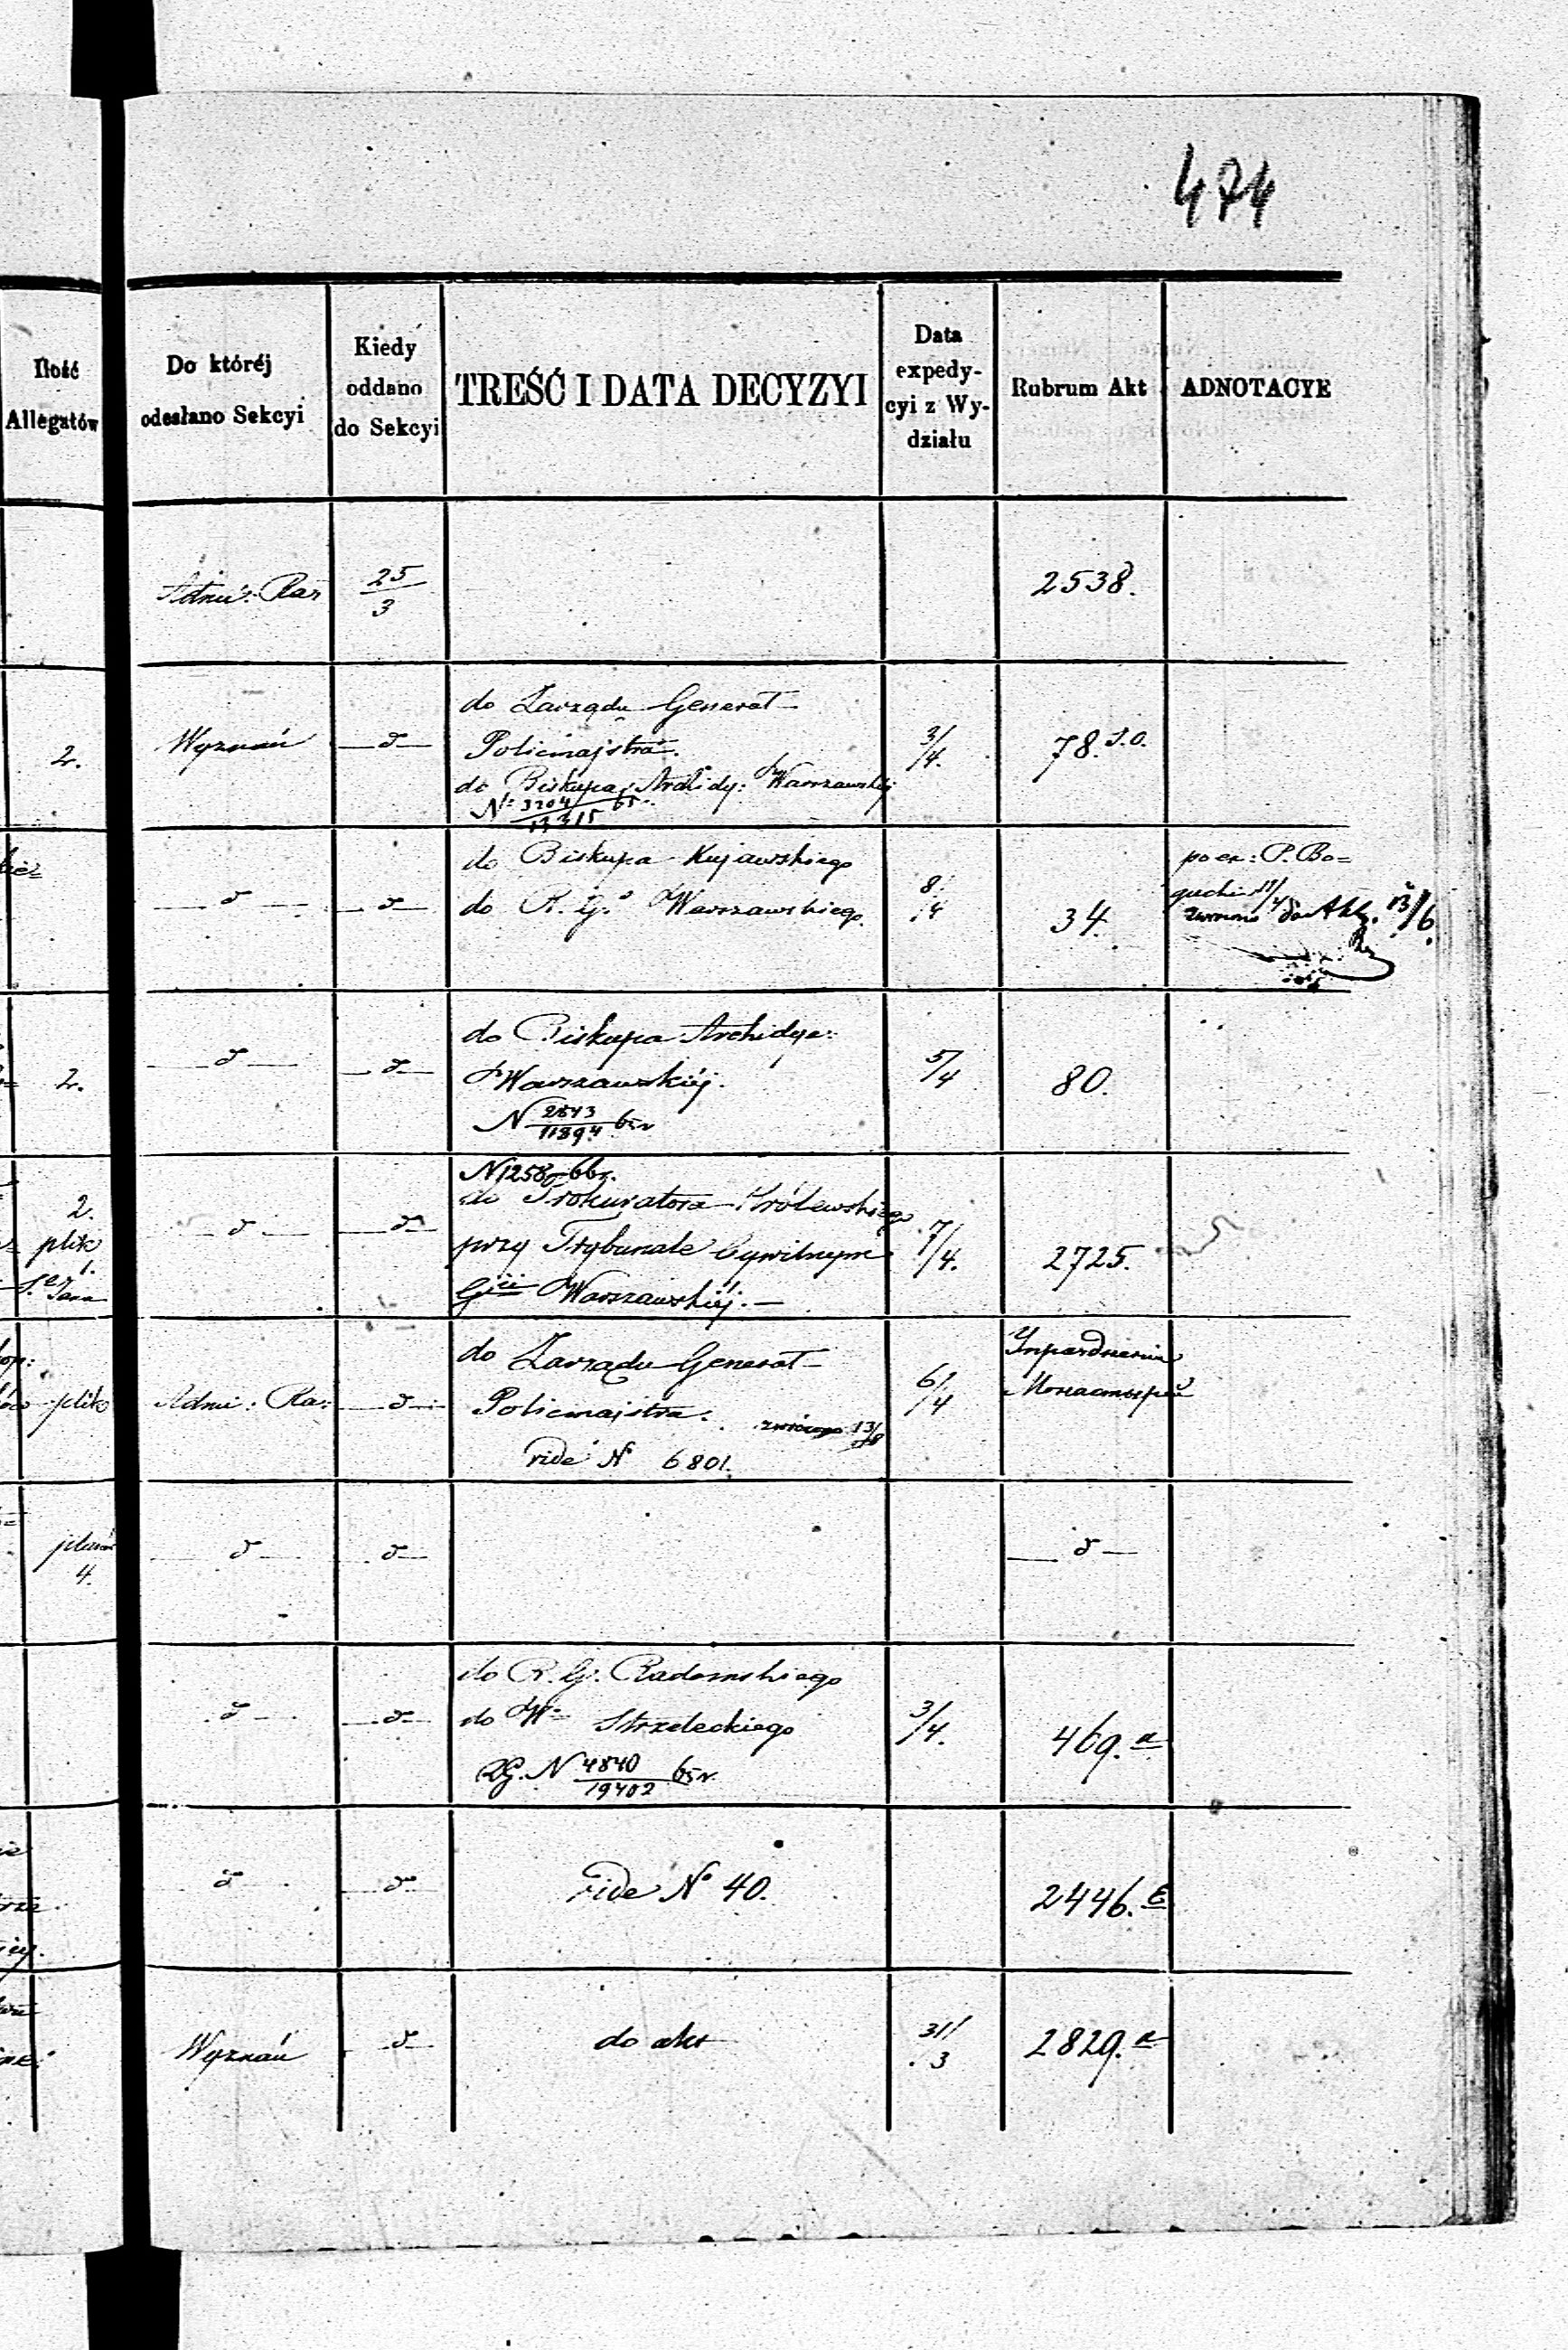 474
Ilość
Allegatów
Do któréj
odesłano Sekcyi
Kiedy
oddano
do Sekcyi
TREŚĆ I DATA DECYZYI
Data
expedy-
cyi z Wy-
działu
Rubrum Akt
ADNOTACYE
25/3
2538.
2.
Wyznań
d
do Zarządu Generał
Policmajstra.
do Biskupa Archidy: Warszawskiej
N° 3204/13315 65
3/4.
78.
d
d
do Biskupa Kujawskiego
do R. G. Warszawskiego
8/4
34.
po ex: P. Bo=
do Akt. 13/6.
2.
d
d
do Biskupa Archidye:
Warszawskiéj.
N 2843/11894 65r
5/4
80.
2.
plik
1.
d
d
N1258-66r.
do Prokuratora Królewskiego
przy Trybunale Cywilnym
Gii Warszawskiéj.
7/4.
2725.
plik
Adm: Ra:
d
do Zarządu Generał
Policmajstra.
vide N° 6801.
6/4
Упразднения
Монастырей
4.
d
d
d
d
d
do R. G. Radomskiego
do W Strzeleckiego
RG. N 4840/19402 65r.
3/4.
469.a
d
d
vide N° 40.
2446.
Wyznań
d
do akt
31/3
2829.a